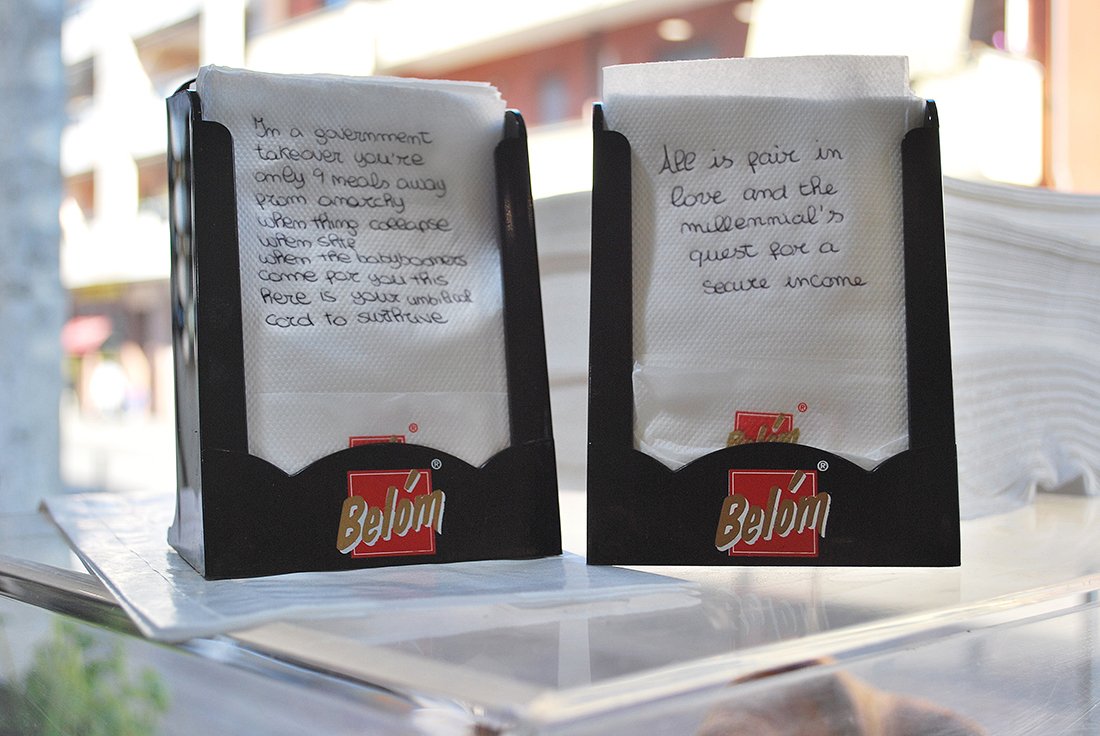 In a government
takeover you're
only 9 meals away
from anarchy
when thing collapse
when shte
when the babyboomers
come for you this
here is your umbilical
cord to surthrive
®
Belóm®
All is fair in
love and the
millennial's
quest for a
secure income
Belóm®
Belóm®